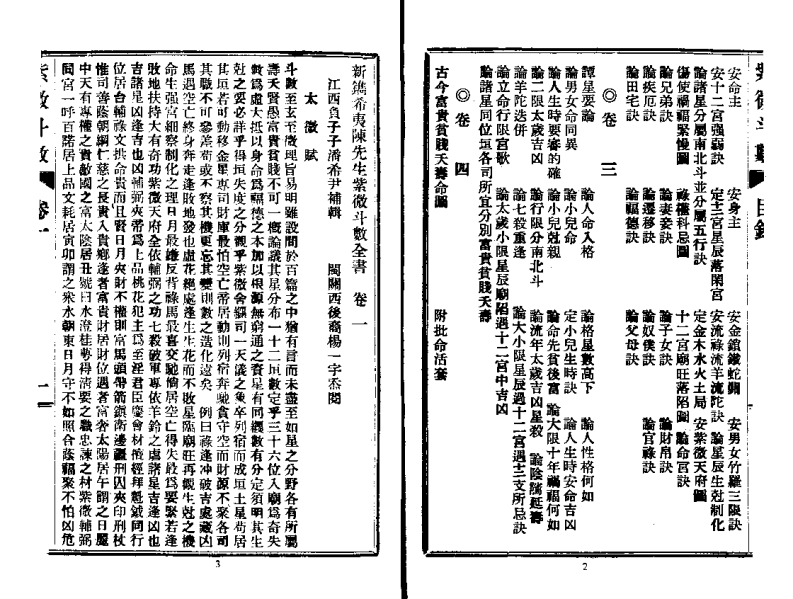 紫微斗數 目錄
安命主 安身主 安金鎖鐵蛇關 安男女竹羅三限訣
安十二宮强弱訣 定十二宮星辰落閑宮 安流祿流羊流陀訣 論星辰生尅制化
論諸星分屬南北斗並分屬五行訣 定金木水火土局 安紫微天府圖
傷使禍福緊慢圖 祿權科忌圖 十二宮廟旺落陷圖 論命宮訣
論兄弟訣 論妻妾訣 論子女訣 論財帛訣
論疾厄訣 論遷移訣 論奴僕訣 論官祿訣
論田宅訣 論福德訣 論父母訣
◎卷 三
譚星要論 論人命入格 論格星數高下 論人性格何如
論男女命同異 論小兒命 定小兒生時訣 論人生時安命吉凶
論人生時要審的確 論小兒尅親 論命先貧後富 論大限十年禍福何如
論二限太歲吉凶 論行限分南北斗 論流年太歲吉凶星殺 論陰騭延壽
論羊陀迭併 論七殺重逢 論大小限星辰過十二宮遇十二支所忌訣
論立命行限宮歌 論太歲小限星辰廟陷遇十二宮中吉凶
論諸星同位垣各司所宜分別富貴貧賤夭壽
◎卷 四
古今富貴貧賤夭壽命圖 附批命活套
2
新鐫希夷陳先生紫微斗數全書 卷一
江西負子子潘希尹補輯 閩關西後裔楊一宇叅閱
太微賦
斗數至玄至微理旨易明雖設問於百篇之中猶有言而未盡至如星之分野各有所屬
壽夭賢愚富貴貧賤不可一概論議其星分布一十二垣數定乎三十六位入廟爲奇失
數爲虛大抵以身命爲福德之本加以根源無窮通之資星有同躔數有分定須明其生
尅之要必詳乎得垣失度之分觀乎紫微舍躔司一天儀之象卒列宿而成垣土星苟居
其垣若可動移金星專司財庫最怕空亡帝居動則列宿奔馳貪守空而財源不聚各司
其職不可參差苟或不察其機更忘其變則數之造化遠矣 例曰祿逢冲破吉處藏凶
馬遇空亡終身奔走逢敗地發也虛花絕處逢生生花而不敗星臨廟旺再觀生尅之機
命生强宮細察制化之理日月最嫌反背祿馬最喜交馳倘居空亡得失最爲要緊若逢
敗地扶持大有奇功紫微天府全依輔弼之功七殺破軍專依羊鈴之虐諸星吉逢凶也
吉諸星凶逢吉也凶輔弼夾帝爲上品桃花犯主爲至淫君臣慶會材擅經邦魁鉞同行
位居台輔祿文拱命貴而且賢日月夾財不權則富馬頭帶箭鎭衛邊疆刑囚夾印刑杖
惟司善蔭朝綱仁慈之長貴入貴鄉逢者富貴財居財位遇者富奢太陽居午謂之日麗
中天有專權之貴敵國之富太陰居丑號曰水澄桂萼得清要之職忠諫之材紫微輔弼
同宮一呼百諾居上品文耗居寅卯謂之衆水朝東日月守不如照合蔭福聚不怕凶危
紫微斗數 卷一 一
3